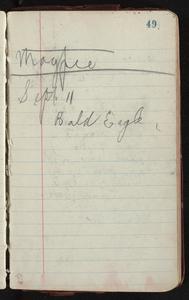 49
Magpie
Sept 11
Bald Eagle